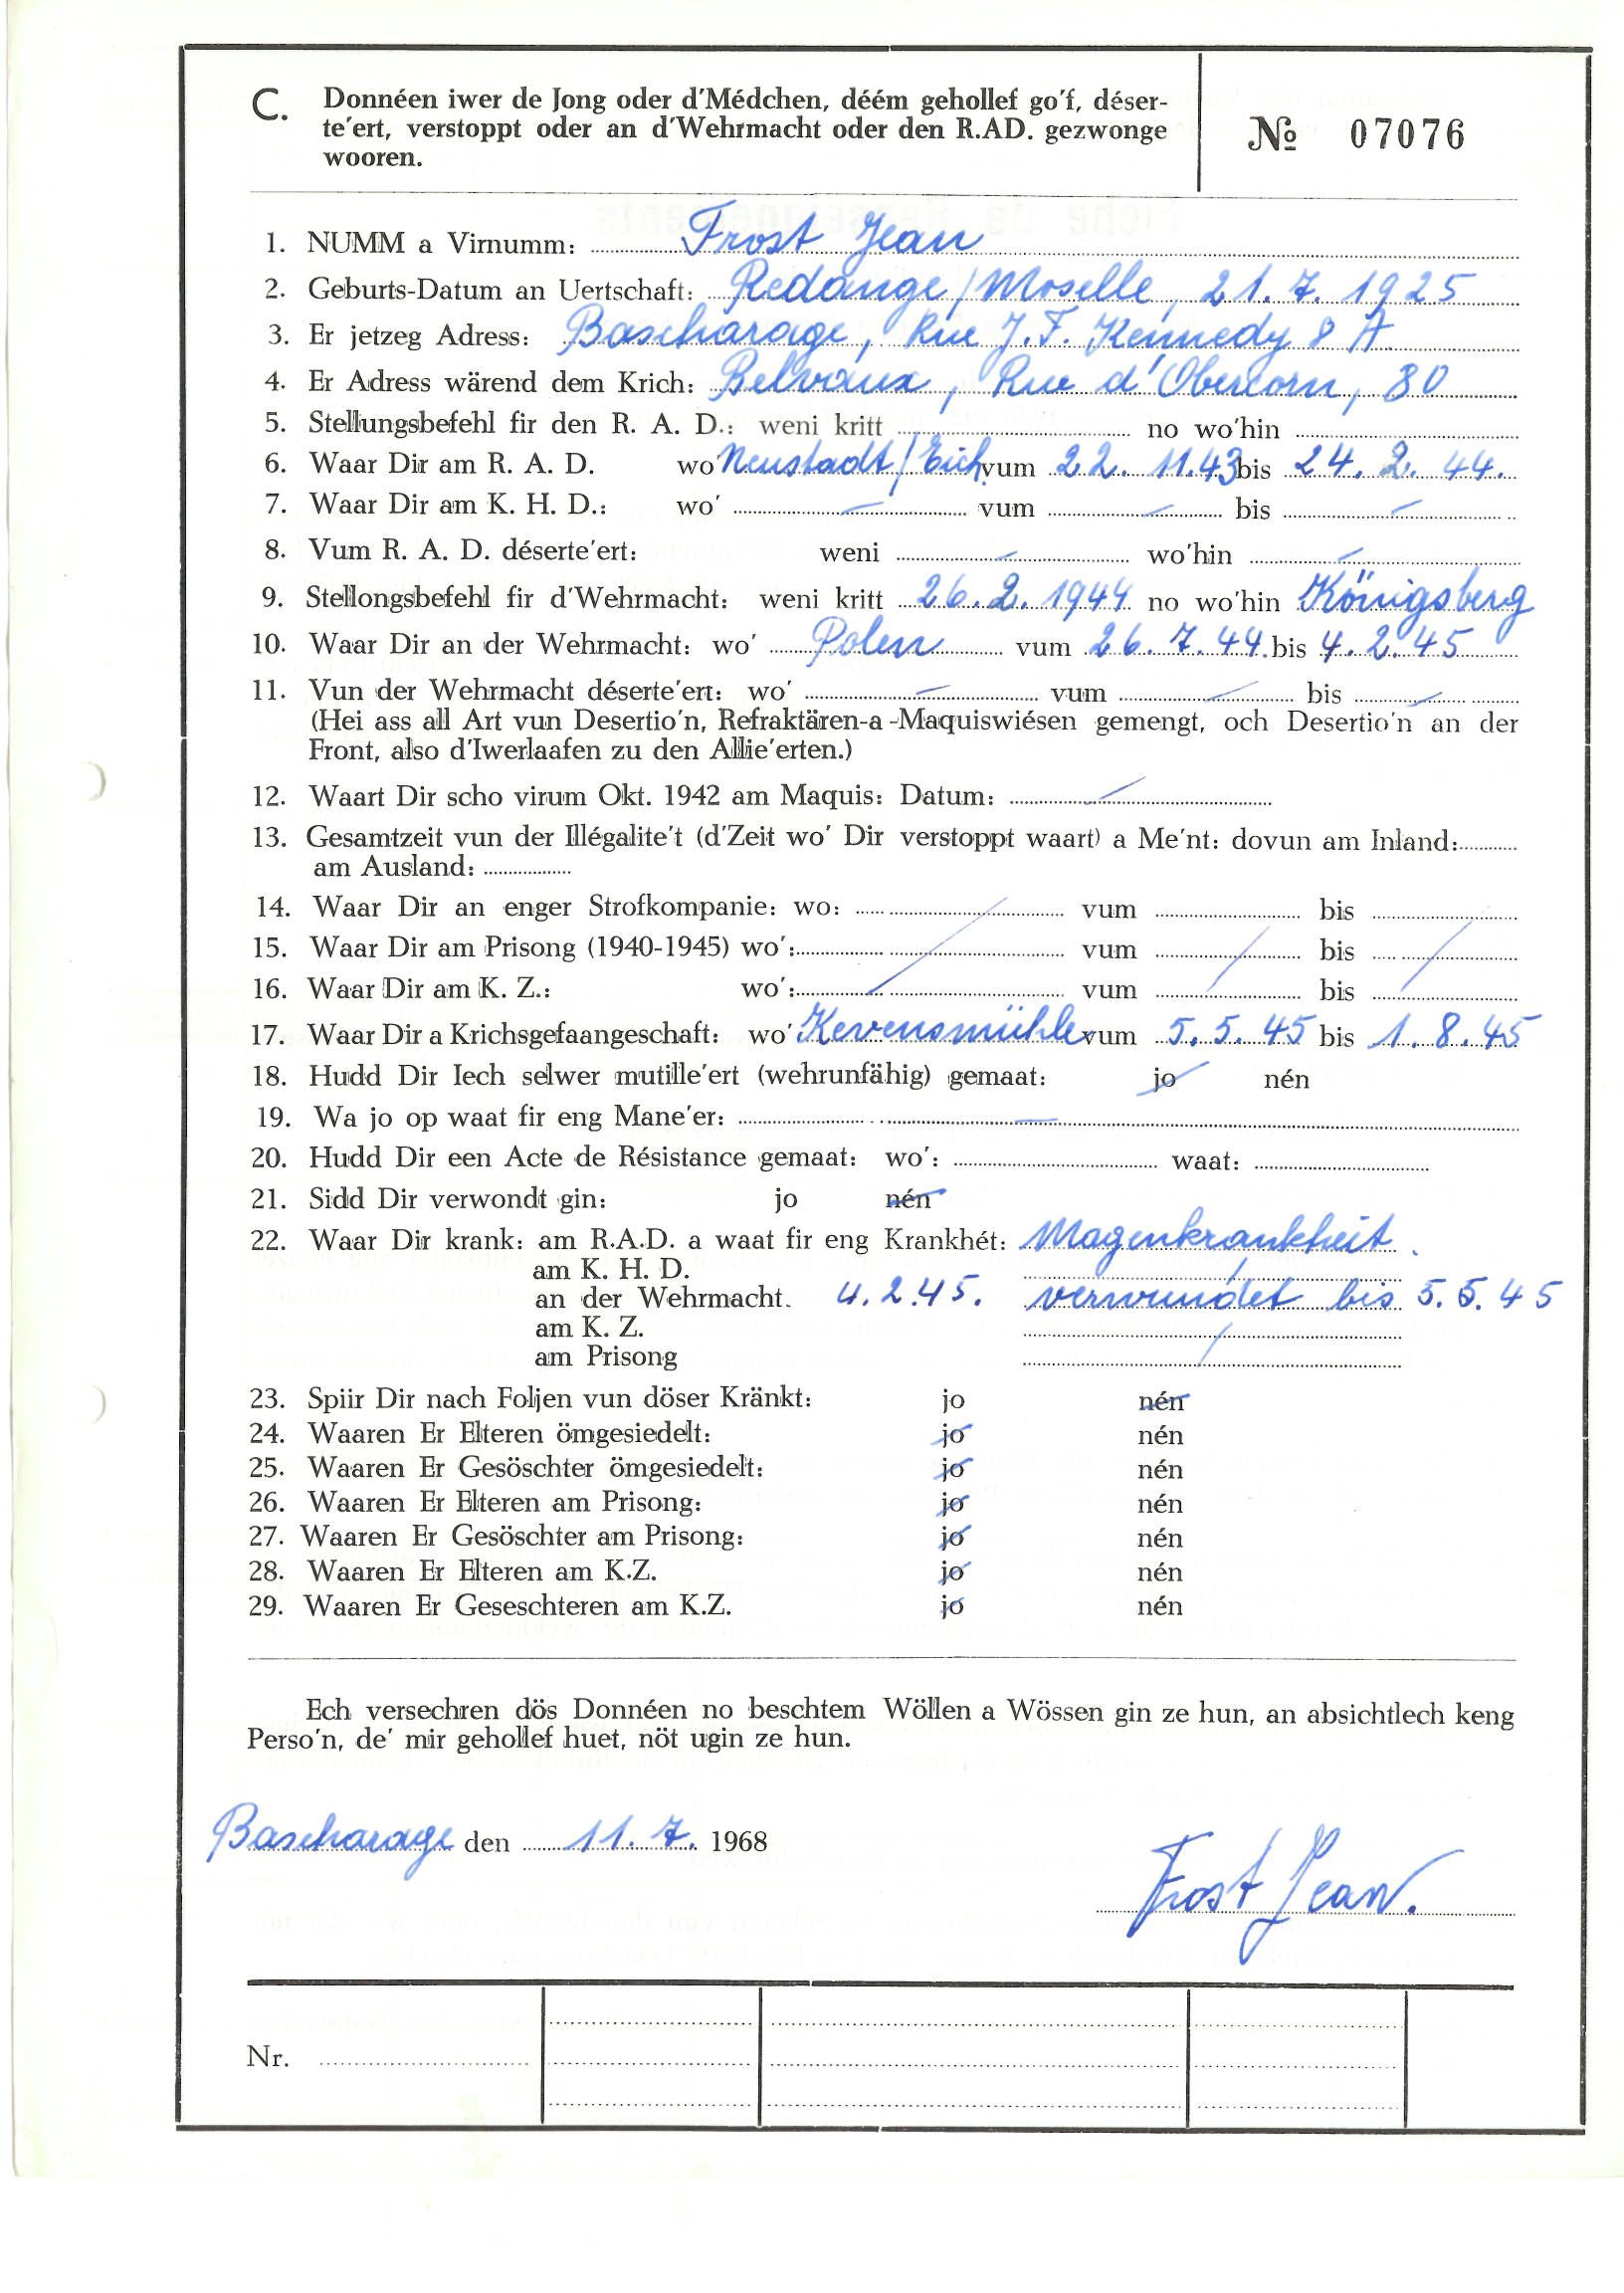 C. Donnéen iwer de Jong oder d'Médchen, déém gehollef go'f, déser-
te'ert, verstoppt oder an d'Wehrmacht oder den R.AD. gezwonge
wooren.
№ 07076
1. NUMM a Virnumm: Frost Jean
2. Geburts-Datum an Uertschaft: Redange/Moselle, 21.7.1925
3. Er jetzeg Adress: Bascharage, Rue J.F. Kennedy 8 A
4. Er Adress wärend dem Krich: Belvaux, Rue d'Obercorn, 80
5. Stellungsbefehl fir den R. A. D.: weni kritt no wo'hin
6. Waar Dir am R. A. D. wo Neustadt/Eich vum 22.11.43 bis 24.2.44.
7. Waar Dir am K. H. D.: wo' – vum – bis –
8. Vum R. A. D. déserte'ert: weni – wo'hin –
9. Stellongsbefehl fir d'Wehrmacht: weni kritt 26.2.1944 no wo'hin Königsberg
10. Waar Dir an der Wehrmacht: wo' Polen vum 26.7.44. bis 4.2.45
11. Vun der Wehrmacht déserte'ert: wo' – vum – bis –
(Hei ass all Art vun Desertio'n, Refraktären-a-Maquiswiésen gemengt, och Desertio'n an der
Front, also d'Iwerlaafen zu den Allie'erten.)
12. Waart Dir scho virum Okt. 1942 am Maquis: Datum: –
13. Gesamtzeit vun der Illégalite't (d'Zeit wo' Dir verstoppt waart) a Me'nt: dovun am Inland:
am Ausland:
14. Waar Dir an enger Strofkompanie: wo: vum bis
15. Waar Dir am Prisong (1940-1945) wo': vum bis
16. Waar Dir am K. Z.: wo': vum bis
17. Waar Dir a Krichsgefaangeschaft: wo' Kevensmühle vum 5.5.45 bis 1.8.45
18. Hudd Dir Iech selwer mutille'ert (wehrunfähig) gemaat: jo nén
19. Wa jo op waat fir eng Mane'er: –
20. Hudd Dir een Acte de Résistance gemaat: wo': waat:
21. Sidd Dir verwondt gin: jo nén
22. Waar Dir krank: am R.A.D. a waat fir eng Krankhét: Magenkrankheit.
am K. H. D.
an der Wehrmacht. 4.2.45. verwundet bis 5.5.45
am K. Z.
am Prisong
23. Spiir Dir nach Foljen vun döser Kränkt: jo nén
24. Waaren Er Elteren ömgesiedelt: jo nén
25. Waaren Er Gesöschter ömgesiedelt: jo nén
26. Waaren Er Elteren am Prisong: jo nén
27. Waaren Er Gesöschter am Prisong: jo nén
28. Waaren Er Elteren am K.Z. jo nén
29. Waaren Er Geseschteren am K.Z. jo nén
Ech versechren dös Donnéen no beschtem Wöllen a Wössen gin ze hun, an absichtlech keng
Perso'n, de' mir gehollef huet, nöt ugin ze hun.
Bascharage den 11.7. 1968
Frost Jean.
Nr.